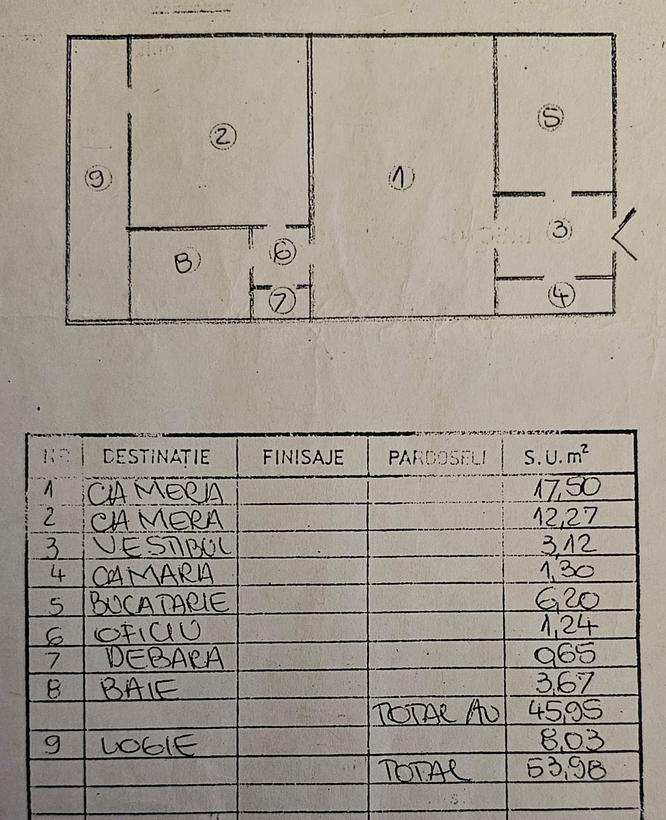 2
5
1
9
3
8
6
7
4
NR DESTINAȚIE FINISAJE PARDOSELI S.U. m²
1 CAMERA 17,50
2 CAMERA 12,27
3 VESTIBUL 3,12
4 CAMARA 1,30
5 BUCATARIE 6,20
6 OFICIU 1,24
7 DEBARA 0,65
8 BAIE 3,67
TOTAL AU 45,95
9 LOGIE 8,03
TOTAL 53,98